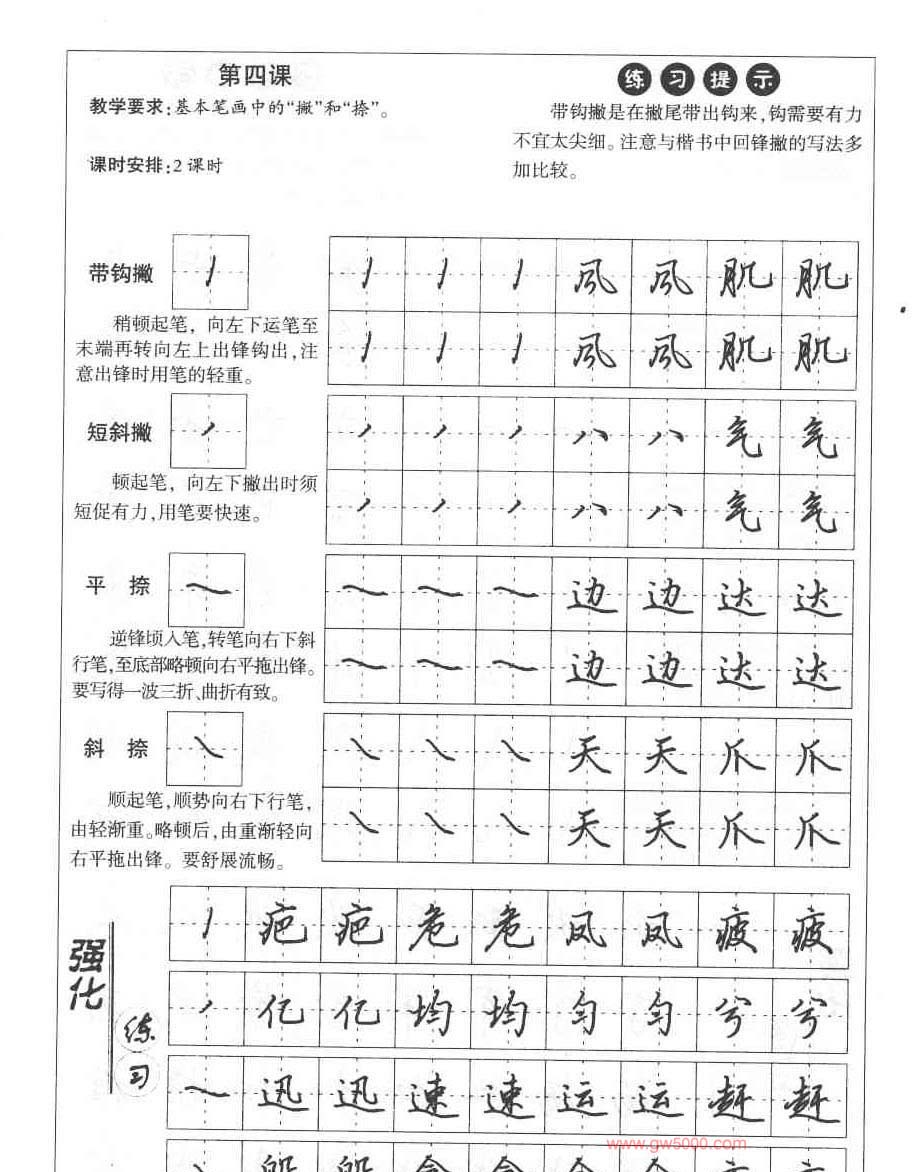 第四课
教学要求:基本笔画中的“撇”和“捺”。
课时安排:2课时
练习提示
带钩撇是在撇尾带出钩来,钩需要有力
不宜太尖细。注意与楷书中回锋撇的写法多
加比较。
带钩撇
稍顿起笔，向左下运笔至
末端再转向左上出锋钩出,注
意出锋时用笔的轻重。
風 風 肌 肌
風 風 肌 肌
短斜撇
顿起笔，向左下撇出时须
短促有力,用笔要快速。
八 八 气 气
八 八 气 气
平 捺
逆锋顷入笔,转笔向右下斜
行笔,至底部略顿向右平拖出锋。
要写得一波三折、曲折有致。
边 边 达 达
边 边 达 达
斜 捺
顺起笔,顺势向右下行笔,
由轻渐重。略顿后,由重渐轻向
右平拖出锋。要舒展流畅。
天 天 爪 爪
天 天 爪 爪
强化
练习
疤 疤 危 危 凤 凤 疲 疲
亿 亿 均 均 匀 匀 兮 兮
迅 迅 速 速 运 运 赶 赶
www.gw5000.com